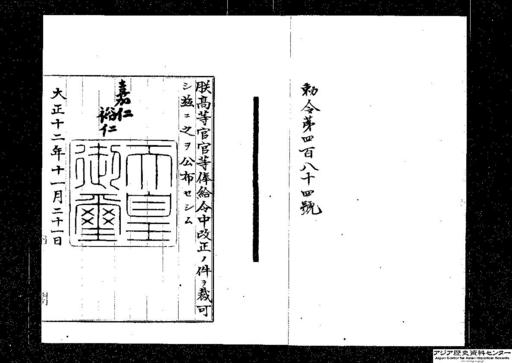 勅令第四百八十四號
朕高等官官等俸給令中改正ノ件ヲ裁可
シ茲ニ之ヲ公布セシム
嘉仁
裕仁
天皇
御璽
大正十二年十一月二十一日
アジア歴史資料センター
Japan Center for Asian Historical Records